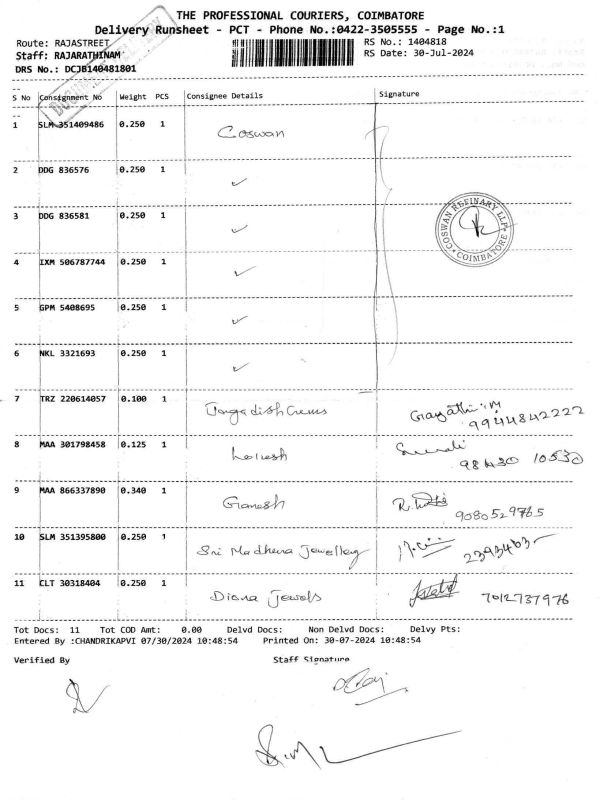 THE PROFESSIONAL COURIERS, COIMBATORE
Delivery Runsheet - PCT - Phone No.:0422-3505555 - Page No.:1
Route: RAJASTREET
RS No.: 1404818
Staff: RAJARATHINAM
RS Date: 30-Jul-2024
DRS No.: DCJB140481801
S No Consignment No Weight PCS Consignee Details Signature
1 SLM 351409486 0.250 1 Coswan
2 DDG 836576 0.250 1 ✓
3 DDG 836581 0.250 1 ✓
COSWAN REFINARY LLP
COIMBATORE
4 IXM 506787744 0.250 1 ✓
5 GPM 5408695 0.250 1 ✓
6 NKL 3321693 0.250 1 ✓
7 TRZ 220614057 0.100 1 Gayathri.M
9944842222
8 MAA 301798458 0.125 1
98430 10530
9 MAA 866337890 0.340 1 Ganesh
9080529765
10 SLM 351395800 0.250 1 Sri Madhena Jewellery
11 CLT 30318404 0.250 1 Diana Jewels 7012737976
Tot Docs: 11 Tot COD Amt: 0.00 Delvd Docs: Non Delvd Docs: Delvy Pts:
Entered By :CHANDRIKAPVI 07/30/2024 10:48:54 Printed On: 30-07-2024 10:48:54
Verified By Staff Signature